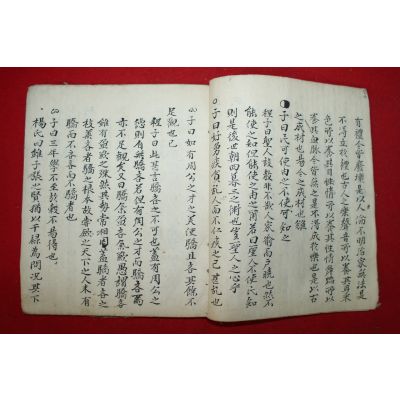 有禮今皆廢壞是以人倫不明治家無法是
不得立於禮也古人之樂聲音所以養其耳采
色所以養其目性情所以養其性情舞蹈所以
養其血脈今皆無之是不得成於樂也是以古
之成材也易今之成材也難
子曰民可使由之不可使知之
程子曰聖人設教非不欲人家喻而戶曉也然不
能使之知但能使之由之爾若曰聖人不使民知
則是後世朝四暮三之術也豈聖人之心乎
子曰好勇疾貧乱人而不仁疾之已甚乱也
子曰如有周公之才之美使驕且吝其餘不
足觀也已
程子曰此甚言驕吝之不可也蓋有周公之
德則自無驕吝若但有周公之才而驕吝焉
亦不足觀矣又曰驕氣盈吝氣歉愚謂驕吝
雖有盈歉之殊然其勢常相因盖驕者吝之
枝葉吝者驕之根本故嘗驗之天下之人未有
驕而不吝吝而不驕者也
子曰三年學不至於穀不易得也
楊氏曰雖子張之賢猶以干祿為問况其下